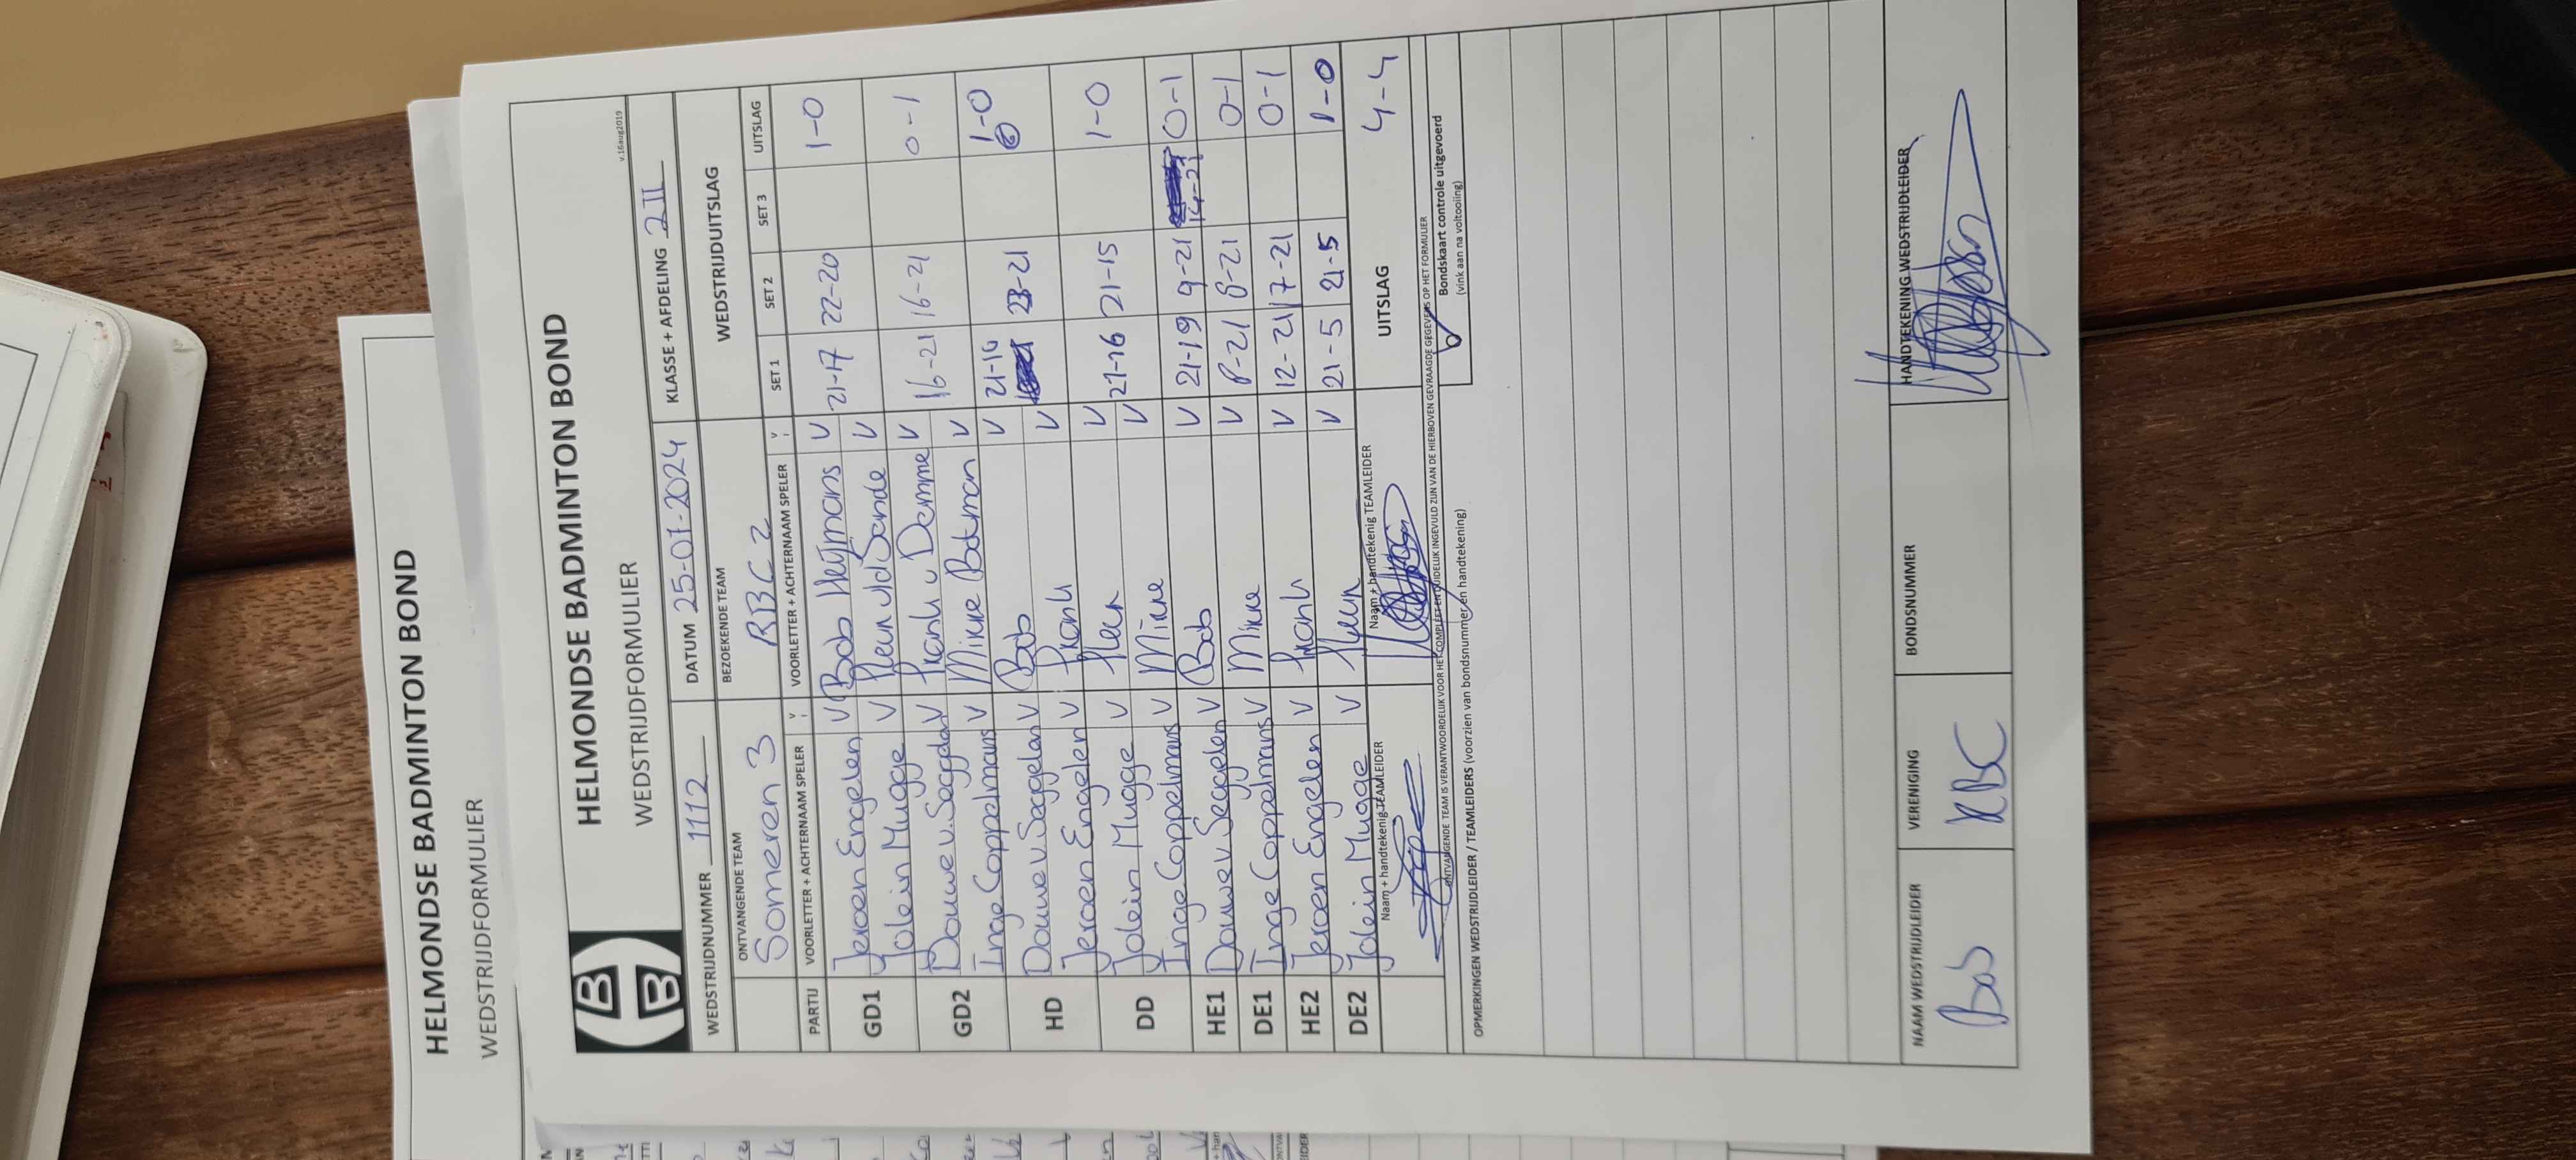 HELMONDSE BADMINTON BOND
WEDSTRIJDFORMULIER
HELMONDSE BADMINTON BOND
WEDSTRIJDFORMULIER
v.16aug2019
WEDSTRIJDNUMMER 1112 DATUM 25-01-2024 KLASSE + AFDELING 2II
ONTVANGENDE TEAM BEZOEKENDE TEAM WEDSTRIJDUITSLAG
Someren 3 RBC 2
PARTIJ VOORLETTER + ACHTERNAAM SPELER V VOORLETTER + ACHTERNAAM SPELER V SET 1 SET 2 SET 3 UITSLAG
GD1 Jeroen Engelen V Bob Heijmans V 21-17 22-20 1-0
Jolein Mugge V Fleur vd Sande V
GD2 Douwe v. Seggelen V Frank v Demmel V 16-21 16-21 0-1
Inge Coppelmans V Mirre Botman V
HD Douwe v. Seggelen V Bob V 21-16 23-21 1-0
Jeroen Engelen V Frank V
DD Jolein Mugge V Fleur V 21-16 21-15 1-0
Inge Coppelmans V Mirre V
HE1 Douwe v Seggelen V Bob V 21-19 9-21 14-21 0-1
DE1 Inge Coppelmans V Mirre V 8-21 8-21 0-1
HE2 Jeroen Engelen V Frank V 12-21 17-21 0-1
DE2 Jolein Mugge V Fleur V 21-5 21-5 1-0
Naam + handtekenig TEAMLEIDER Naam + handtekenig TEAMLEIDER UITSLAG 4-4
ONTVANGENDE TEAM IS VERANTWOORDELIJK VOOR HET COMPLEET EN DUIDELIJK INGEVULD ZIJN VAN DE HIERBOVEN GEVRAAGDE GEGEVENS OP HET FORMULIER
Bondskaart controle uitgevoerd
(vink aan na voltooiing)
OPMERKINGEN WEDSTRIJDLEIDER / TEAMLEIDERS (voorzien van bondsnummer en handtekening)
NAAM WEDSTRIJDLEIDER VERENIGING BONDSNUMMER HANDTEKENING WEDSTRIJDLEIDER
Bob RBC